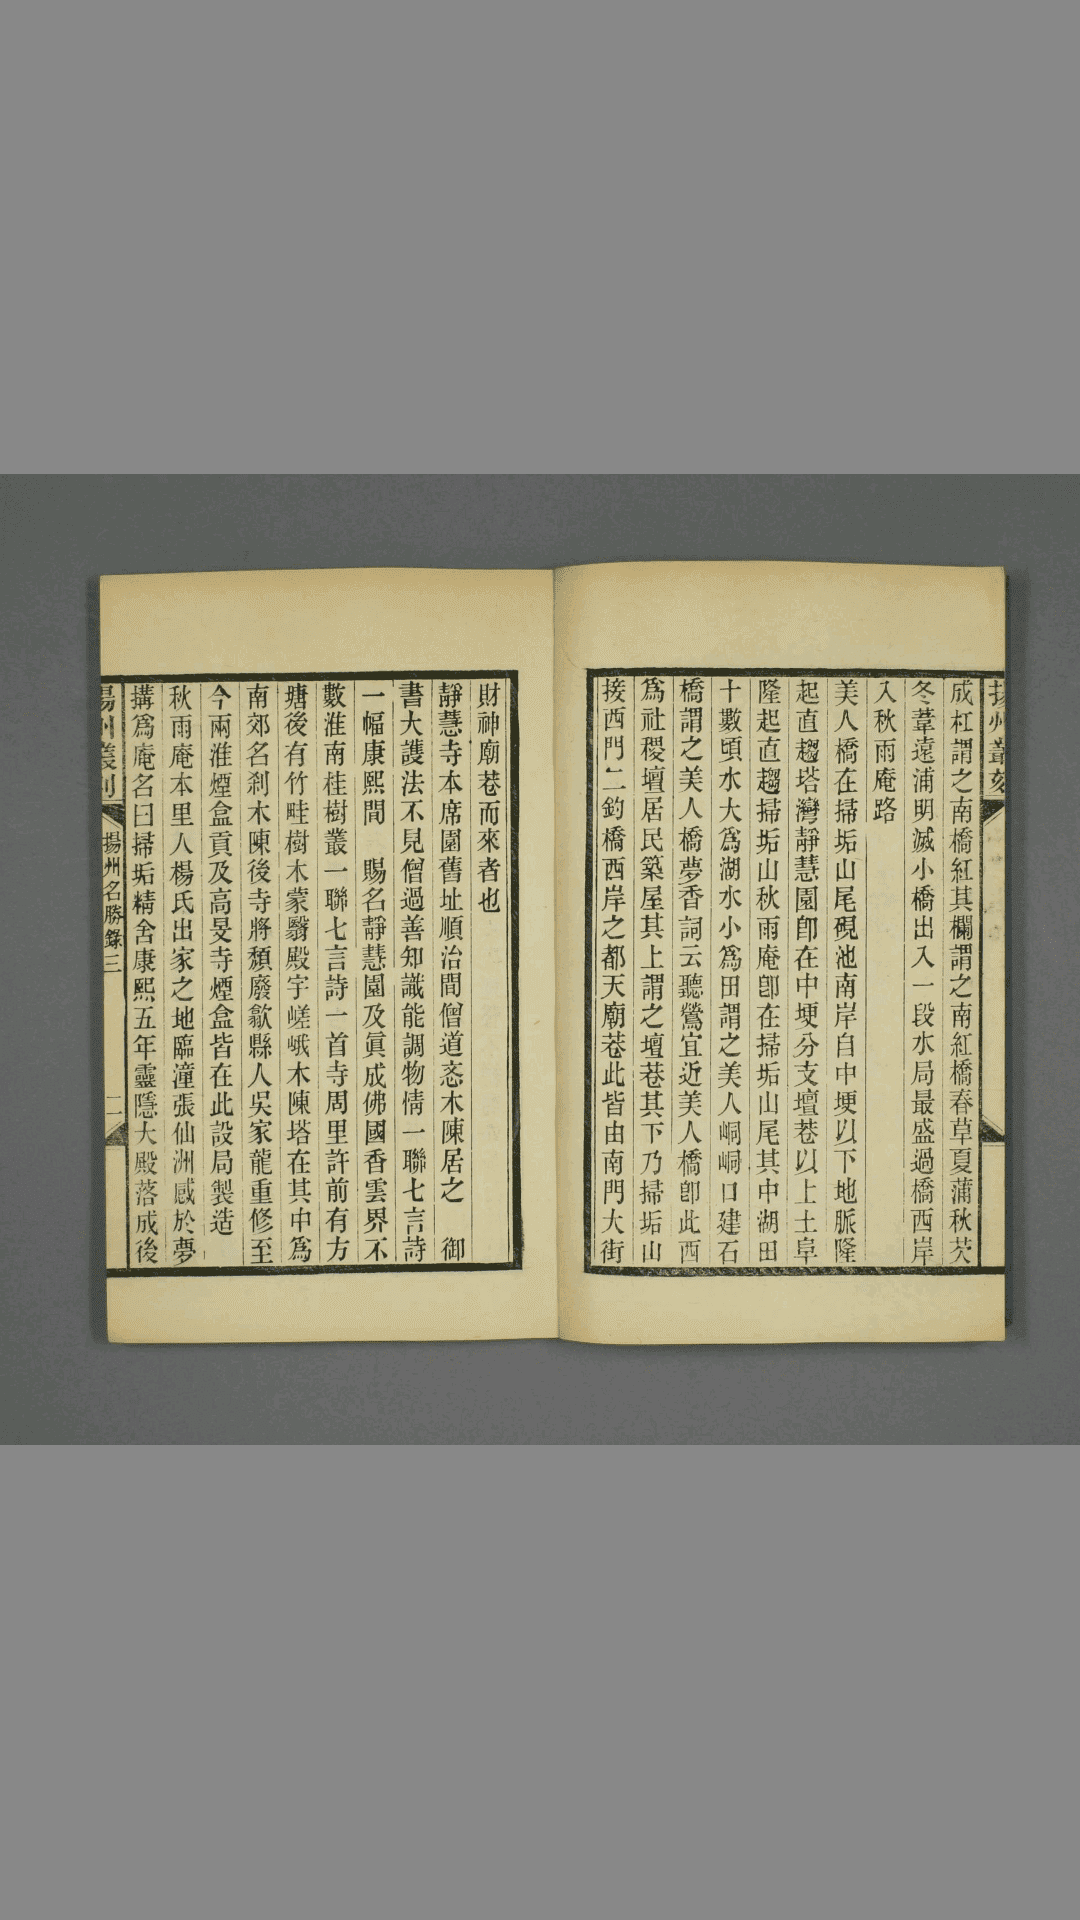 揚州叢刻
成杠謂之南橋紅其欄謂之南紅橋春草夏蒲秋芡
冬葦遠浦明滅小橋出入一段水局最盛過橋西岸
入秋雨庵路
美人橋在掃垢山尾硯池南岸自中埂以下地脈隆
起直趨塔灣靜慧園卽在中埂分支壇巷以上土阜
隆起直趨掃垢山秋雨庵卽在掃垢山尾其中湖田
十數頃水大爲湖水小爲田謂之美人峒峒口建石
橋謂之美人橋夢香詞云聽鶯宜近美人橋卽此西
爲社稷壇居民築屋其上謂之壇巷其下乃掃垢山
接西門二釣橋西岸之都天廟巷此皆由南門大街
財神廟巷而來者也
靜慧寺本席園舊址順治間僧道忞木陳居之 御
書大護法不見僧過善知識能調物情一聯七言詩
一幅康熙間 賜名靜慧園及眞成佛國香雲界不
數淮南桂樹叢一聯七言詩一首寺周里許前有方
塘後有竹畦樹木蒙翳殿宇嵯峨木陳塔在其中爲
南郊名刹木陳後寺將頹廢歙縣人吳家龍重修至
今兩淮煙盒貢及高旻寺煙盒皆在此設局製造
秋雨庵本里人楊氏出家之地臨潼張仙洲感於夢
搆爲庵名曰掃垢精舍康熙五年靈隱大殿落成後
揚州叢刻 揚州名勝錄三 二